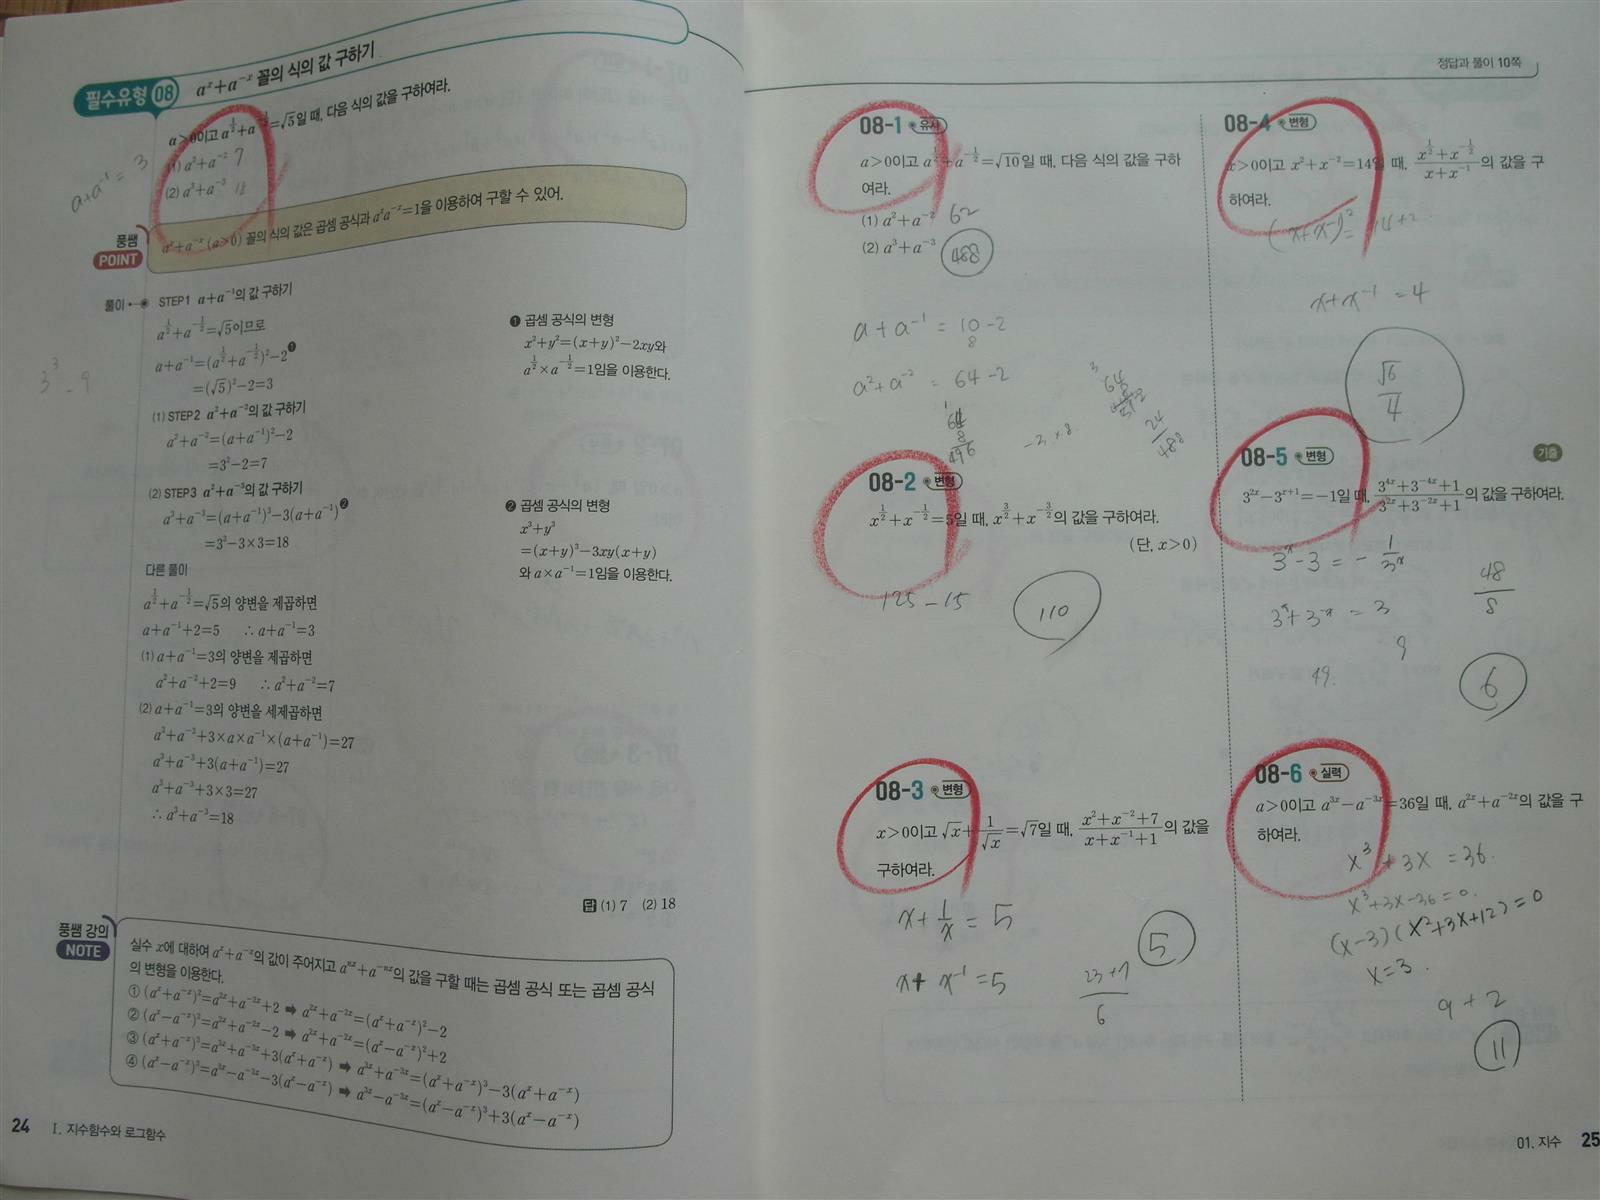 필수유형 08 aˣ+a⁻ˣ 꼴의 식의 값 구하기
a>0이고 a^{1/2}+a^{-1/2}=√5일 때, 다음 식의 값을 구하여라.
(1) a²+a⁻² 7
(2) a³+a⁻³ 18
a+a⁻¹ = 3
풍쌤 POINT
aˣ+a⁻ˣ (a>0) 꼴의 식의 값은 곱셈 공식과 aˣa⁻ˣ=1을 이용하여 구할 수 있어.
풀이 STEP1 a+a⁻¹의 값 구하기
a^{1/2}+a^{-1/2}=√5이므로
a+a⁻¹=(a^{1/2}+a^{-1/2})²-2❶
=(√5)²-2=3
3³-9
(1) STEP2 a²+a⁻²의 값 구하기
a²+a⁻²=(a+a⁻¹)²-2
=3²-2=7
(2) STEP3 a³+a⁻³의 값 구하기
a³+a⁻³=(a+a⁻¹)³-3(a+a⁻¹)❷
=3³-3×3=18
다른 풀이
a^{1/2}+a^{-1/2}=√5의 양변을 제곱하면
a+a⁻¹+2=5 ∴ a+a⁻¹=3
(1) a+a⁻¹=3의 양변을 제곱하면
a²+a⁻²+2=9 ∴ a²+a⁻²=7
(2) a+a⁻¹=3의 양변을 세제곱하면
a³+a⁻³+3×a×a⁻¹×(a+a⁻¹)=27
a³+a⁻³+3(a+a⁻¹)=27
a³+a⁻³+3×3=27
∴ a³+a⁻³=18
❶ 곱셈 공식의 변형
x²+y²=(x+y)²-2xy와
a^{1/2}×a^{-1/2}=1임을 이용한다.
❷ 곱셈 공식의 변형
x³+y³
=(x+y)³-3xy(x+y)
와 a×a⁻¹=1임을 이용한다.
답 (1) 7 (2) 18
풍쌤 강의 NOTE
실수 x에 대하여 aˣ+a⁻ˣ의 값이 주어지고 aⁿˣ+a⁻ⁿˣ의 값을 구할 때는 곱셈 공식 또는 곱셈 공식
의 변형을 이용한다.
① (aˣ+a⁻ˣ)²=a²ˣ+a⁻²ˣ+2 ➡ a²ˣ+a⁻²ˣ=(aˣ+a⁻ˣ)²-2
② (aˣ-a⁻ˣ)²=a²ˣ+a⁻²ˣ-2 ➡ a²ˣ+a⁻²ˣ=(aˣ-a⁻ˣ)²+2
③ (aˣ+a⁻ˣ)³=a³ˣ+a⁻³ˣ+3(aˣ+a⁻ˣ) ➡ a³ˣ+a⁻³ˣ=(aˣ+a⁻ˣ)³-3(aˣ+a⁻ˣ)
④ (aˣ-a⁻ˣ)³=a³ˣ-a⁻³ˣ-3(aˣ-a⁻ˣ) ➡ a³ˣ-a⁻³ˣ=(aˣ-a⁻ˣ)³+3(aˣ-a⁻ˣ)
24 Ⅰ. 지수함수와 로그함수
정답과 풀이 10쪽
08-1 유사
a>0이고 a^{1/2}+a^{-1/2}=√10일 때, 다음 식의 값을 구하
여라.
(1) a²+a⁻² 62
(2) a³+a⁻³ 488
a+a⁻¹ = 10-2
8
a²+a⁻² = 64-2
-3×8
24
488
08-2 변형
x^{1/2}+x^{-1/2}=5일 때, x^{3/2}+x^{-3/2}의 값을 구하여라.
(단, x>0)
125-15
110
08-3 변형
x>0이고 √x+1/√x=√7일 때, (x²+x⁻²+7)/(x+x⁻¹+1)의 값을
구하여라.
x+1/x = 5
x+x⁻¹=5
(23+7)/6
5
08-4 변형
x>0이고 x²+x⁻²=14일 때, (x^{1/2}+x^{-1/2})/(x+x⁻¹)의 값을 구
하여라.
(x+x⁻¹)²=14+2
x+x⁻¹=4
√6/4
08-5 변형 기출
3²ˣ-3ˣ⁺¹=-1일 때, (3⁴ˣ+3⁻⁴ˣ+1)/(3²ˣ+3⁻²ˣ+1)의 값을 구하여라.
3ˣ-3=-1/3ˣ
3ˣ+3⁻ˣ=3
9
49
48/8
6
08-6 실력
a>0이고 a³ˣ-a⁻³ˣ=36일 때, a²ˣ+a⁻²ˣ의 값을 구
하여라.
x³+3x=36.
x³+3x-36=0.
(x-3)(x²+3x+12)=0
x=3.
9+2
11
01. 지수 25